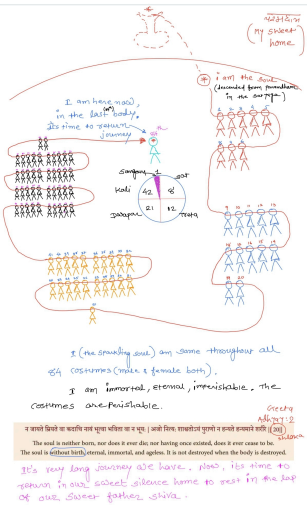 परमधाम
(My sweet home)
i am the soul
(descended from paramdham
in the satyug)
I am here now,
in the last body,
its time to return
journey
Sangam 1
Sat
Kali 42 8
21 12
Dwapar Treta
I (the sparkling soul) am same throughout all
84 costumes (male & female both).
I am immortal, eternal, imperishable. The
costumes are perishable.
Geeta
Adhyay: 2
shloka
न जायते म्रियते वा कदाचि न्नायं भूत्वा भविता वा न भूयः | अजो नित्यः शाश्वतोऽयं पुराणो न हन्यते हन्यमाने शरीरे || 20||
The soul is neither born, nor does it ever die; nor having once existed, does it ever cease to be.
The soul is without birth, eternal, immortal, and ageless. It is not destroyed when the body is destroyed.
It's very long journey we have. Now, its time to
return in our sweet silence home to rest in the lap
of our sweet father shiva.